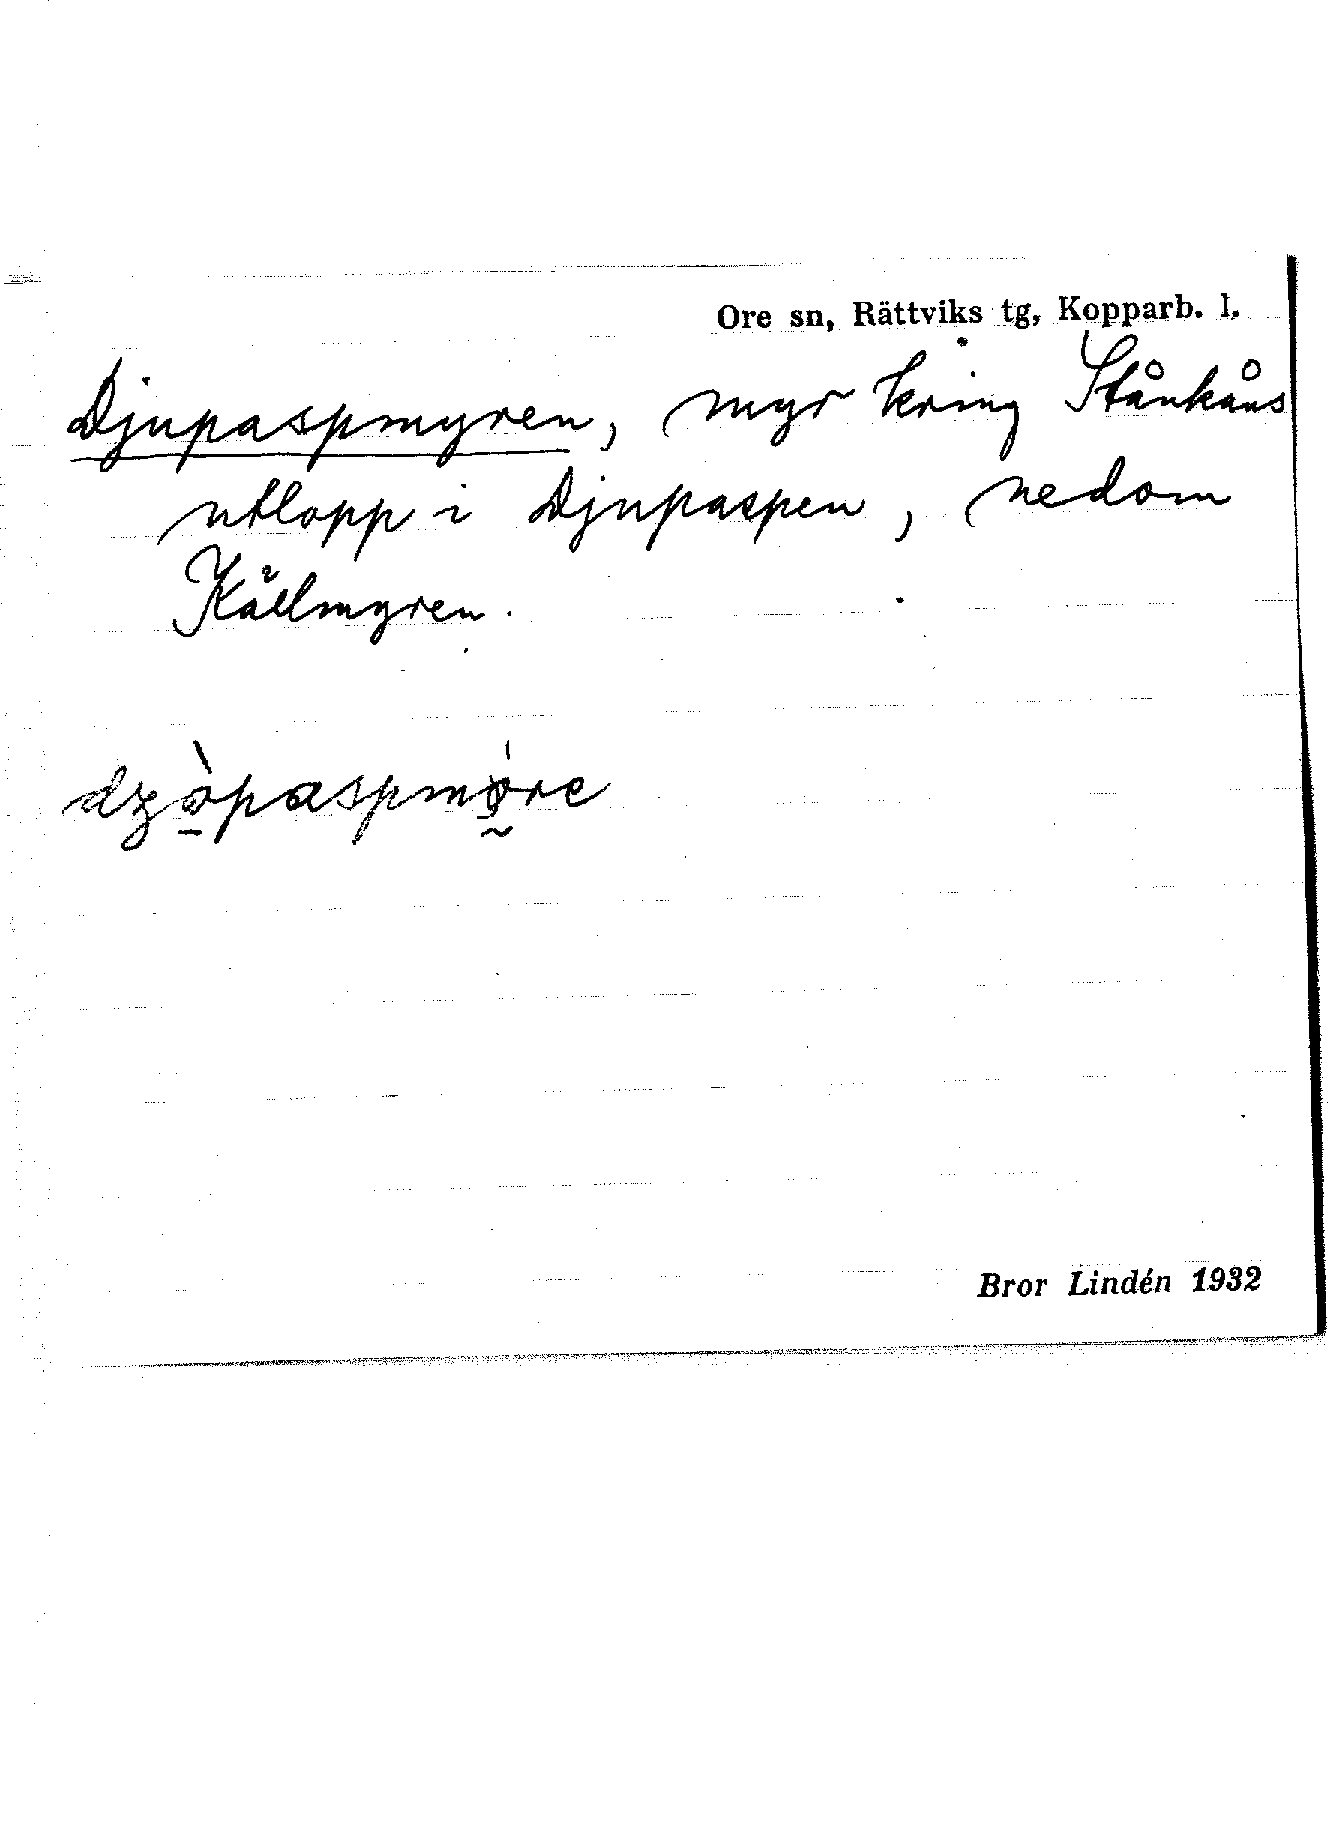 Ore sn, Rättviks tg, Kopparb. l.
Djupaspmyren, myr kring Stånkåns
utlopp i Djupaspen, nedom
Källmyren.
dzò̱paspmǿ̰re
Bror Lindén 1932